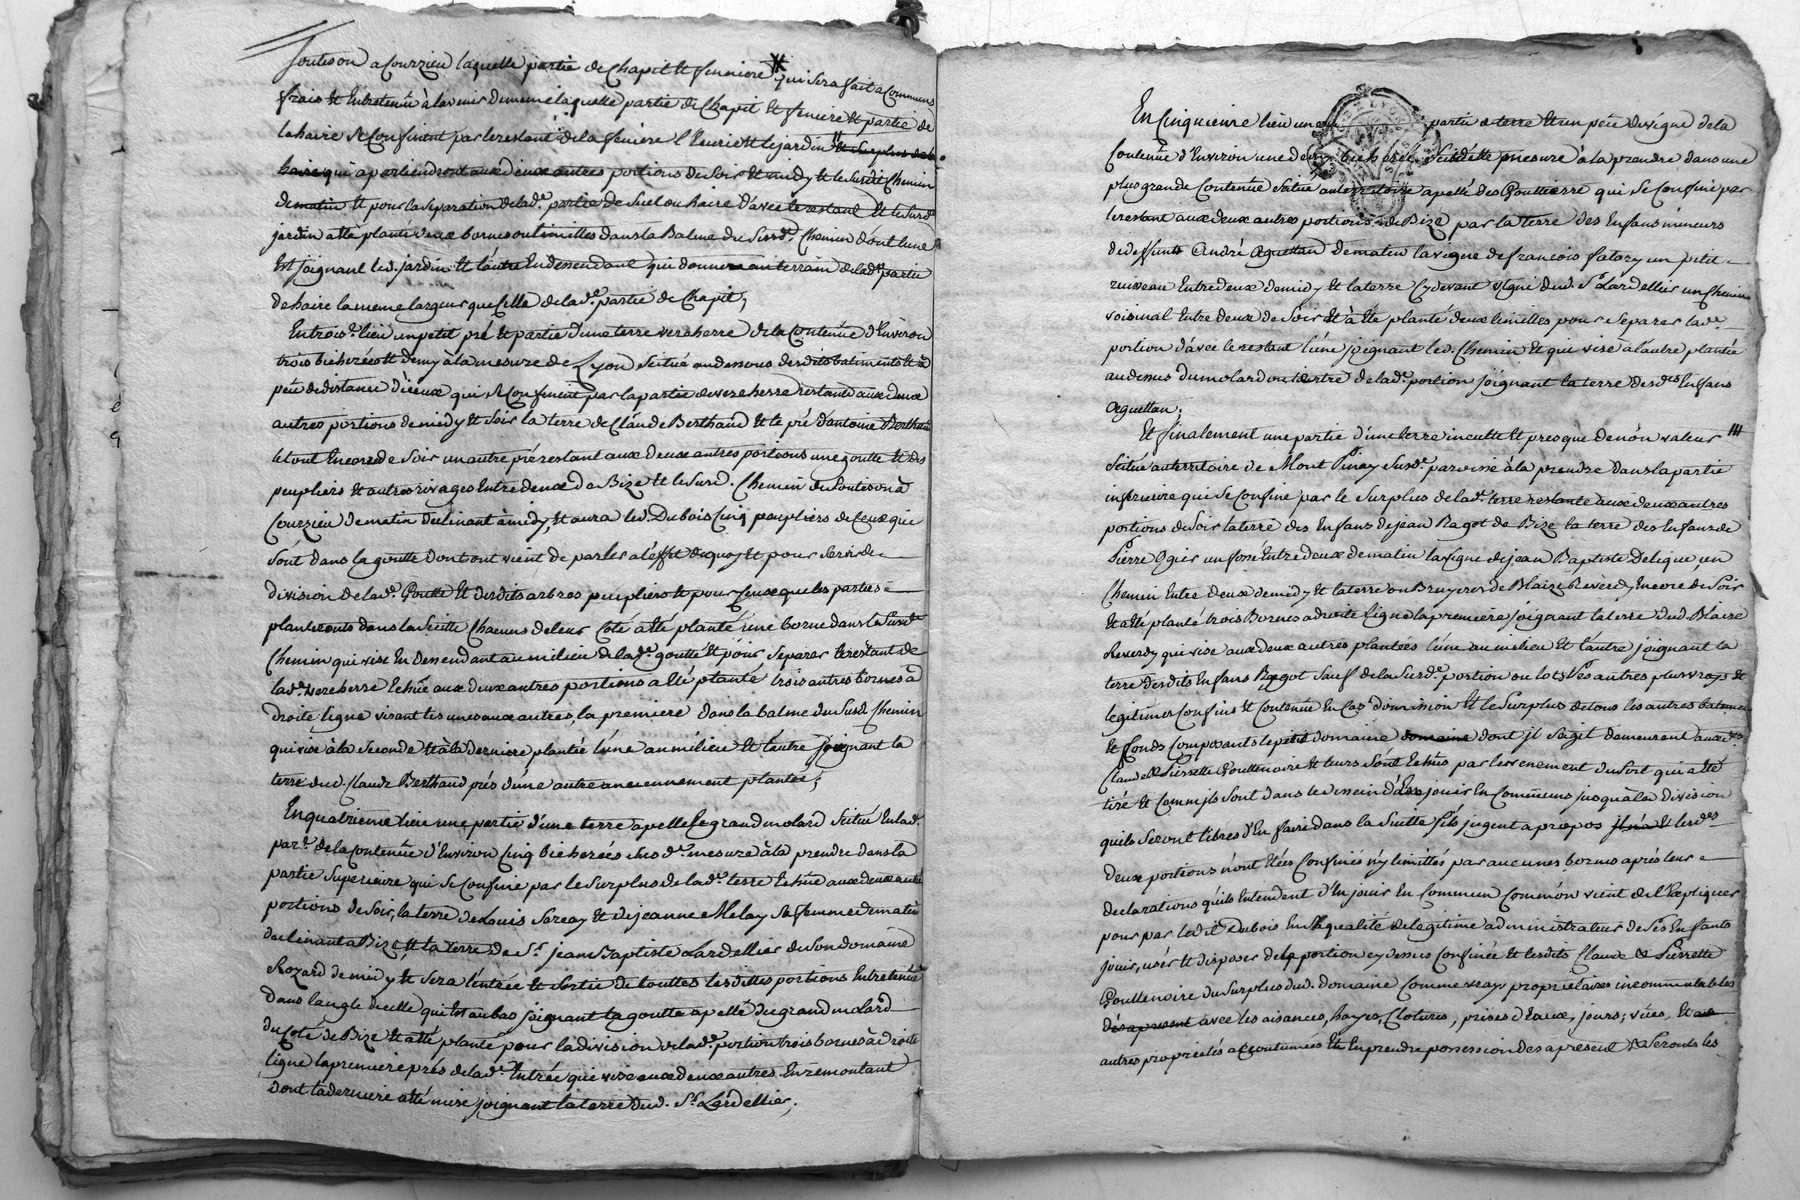 Souteson a Courzieu laquelle partie de Chapit et feniere qui sera fait a Communs
frais et Entretenue à lavenir de meme laquelle partie de Chapit et feniere et partie de
lahaire se Confinent par lerestant de la feniere l'Ecurie et lejardin et surplus de la
haire qui apartiendront aux deux autres portions de soir et midy et le susdit Chemin
de matin et pour la separation de lad.e partie de suel ou haire d'avec le restant et le susd.
jardin a eté planté deux bornes ou limittes dans la Balme du susd.t Chemin dont l'une
Est joignant led. jardin et l'autre En dessendant qui donnera au terrain de lad.e partie
de haire la meme largeur que Celle de lad.e partie de Chapit;
En trois.e lieu un petit pré et partie d'une terre verchere de la Contenue d'Environ
trois bicherées et demy à la mesure de Lyon scitué au dessous desdits batiments et à
peu de distance d'iceux qui se Confinent par la partie de verchere restante aux deux
autres portions de midy et soir la terre de Claude Berthaud et le pré d'antoine Berthaud
le tout Encore de soir un autre pré restant aux deux autres portions une goutte et des
peupliers et autres rivages Entre deux de Bize et le susd. Chemin de Souteson à
Courzieu de matin declinant à midy, et aura led. Dubois Cinq peupliers de Ceux qui
sont dans la goutte dont on vient de parler a l'effet de quoy et pour servir de
division de lad.e Goutte et desdits arbres peupliers et pour Ceux que les parties
planteront dans la suitte Chacuns de leur Coté a eté planté une borne dans le susd.t
Chemin qui vise En dessendant au milieu de lad.e goutte et pour separer le restant de
lad.e verchere Echue aux deux autres portions a eté planté trois autres bornes à
droite ligne visant les unes aux autres, la premiere dans la balme du susd. Chemin
qui vise à la seconde et à la derniere plantée l'une au milieu et l'autre joignant la
terre dud. Claude Berthaud prés d'une autre anciennement plantée;
En quatrieme lieu une partie d'une terre apellé le grand molard scitué En lad.
par.e de la Contenue d'Environ Cinq bicherées susd.e mesure à la prendre dans la
partie superieure qui se Confine par le surplus de lad.e terre Echue aux deux autres
portions de soir, la terre de Louis Sarcay et de jeanne Melay sa femme de matin
declinant a Bize et la terre de S.r jean Baptiste Lardellier de son domaine
Rozard de midy et sera l'entrée et sortie de touttes lesdittes portions Entretenue
dans langle dicelle qui est au bas joignant la goutte apellé du grand molard
du Coté de Bize et a eté planté pour la division de lad.e portion trois bornes à droite
ligne la premiere prés de lad.e Entrée qui vise aux deux autres En remontant
dont la derniere a eté mise joignant la terre dud. S.r Lardellier;
En Cinquieme lieu une partie de terre et un peu de vigne de la
Contenue d'Environ une demy bicherée susditte mesure à la prendre dans une
plus grande Contenue scitué au territoire apellé des Gouttiere qui se Confine par
le restant aux deux autres portions de Bize par la terre des Enfans mineurs
de deffunt André Aguettan de matin la vigne de francois fatozy un petit
ruisseau Entre deux de midy et la terre Cydevant vigne dud. S.r Lardellier un Chemin
voisinal Entre deux de soir et à eté planté deux limittes pour separer lad.e
portion d'avec le restant l'une joignant led. Chemin et qui vise à l'autre plantée
au dessus du molard ou tertre de lad.e portion joignant la terre desd.ts Enfans
Aguettan;
Et finalement une partie d'une terre inculte et presque de non valeur
scitué au territoire de Mont Pinay susd.e paroisse à la prendre dans la partie
inferieure qui se Confine par le surplus de lad.e terre restante aux deux autres
portions de soir la terre des Enfans de jean Ragot de Bize la terre des Enfans de
Pierre Ogier un fossé Entre deux de matin la vigne de jean Baptiste Delique, un
Chemin Entre deux de midy et la terre ou Bruyeres de Blaize Reverdy Encore de soir
et a eté planté trois Bornes a droite Ligne la premiere joignant la terre dud. Blaize
Reverdy qui vise aux deux autres plantées l'une au milieu et l'autre joignant la
terre desdits Enfans Ragot sauf de la susd.e portion ou lots Les autres plus vrays et
legitimes Confins et Contenue En Cas d'omission Et le surplus de tous les autres batimens
et fonds Composants le petit domaine domaine dont jl sagit demeurent auxd.ts
Claude et Pierrette Gouttenoire et leurs sont Echus par levenement du sort qui a eté
tiré et Comm jls sont dans le dessein d'En jouir En Communs jusqu'à la division
quils seront libres d'En faire dans la suitte sils jugent a propos jl n'a et lesd.es
deux portions n'ont etées Confinés n'y limittés par aucunes bornes aprés leur
declarations quils Entendent d'En jouir En Commun Comm'on vient de l'Expliquer
pour par led. S.r Dubois En sa qualité de legitime administrateur de ses Enfants
jouir, user et disposer de la portion cy dessus Confinée et lesdits Claude et Pierrette
Gouttenoire du surplus dud. domaine Comme vrays proprietaires incommutables
dés apresent avec les aisances, hayes, Clotures, prises d'Eaux, jours, vües, et
autres proprietés accoutumées et En prendre possession des apresent et seront les